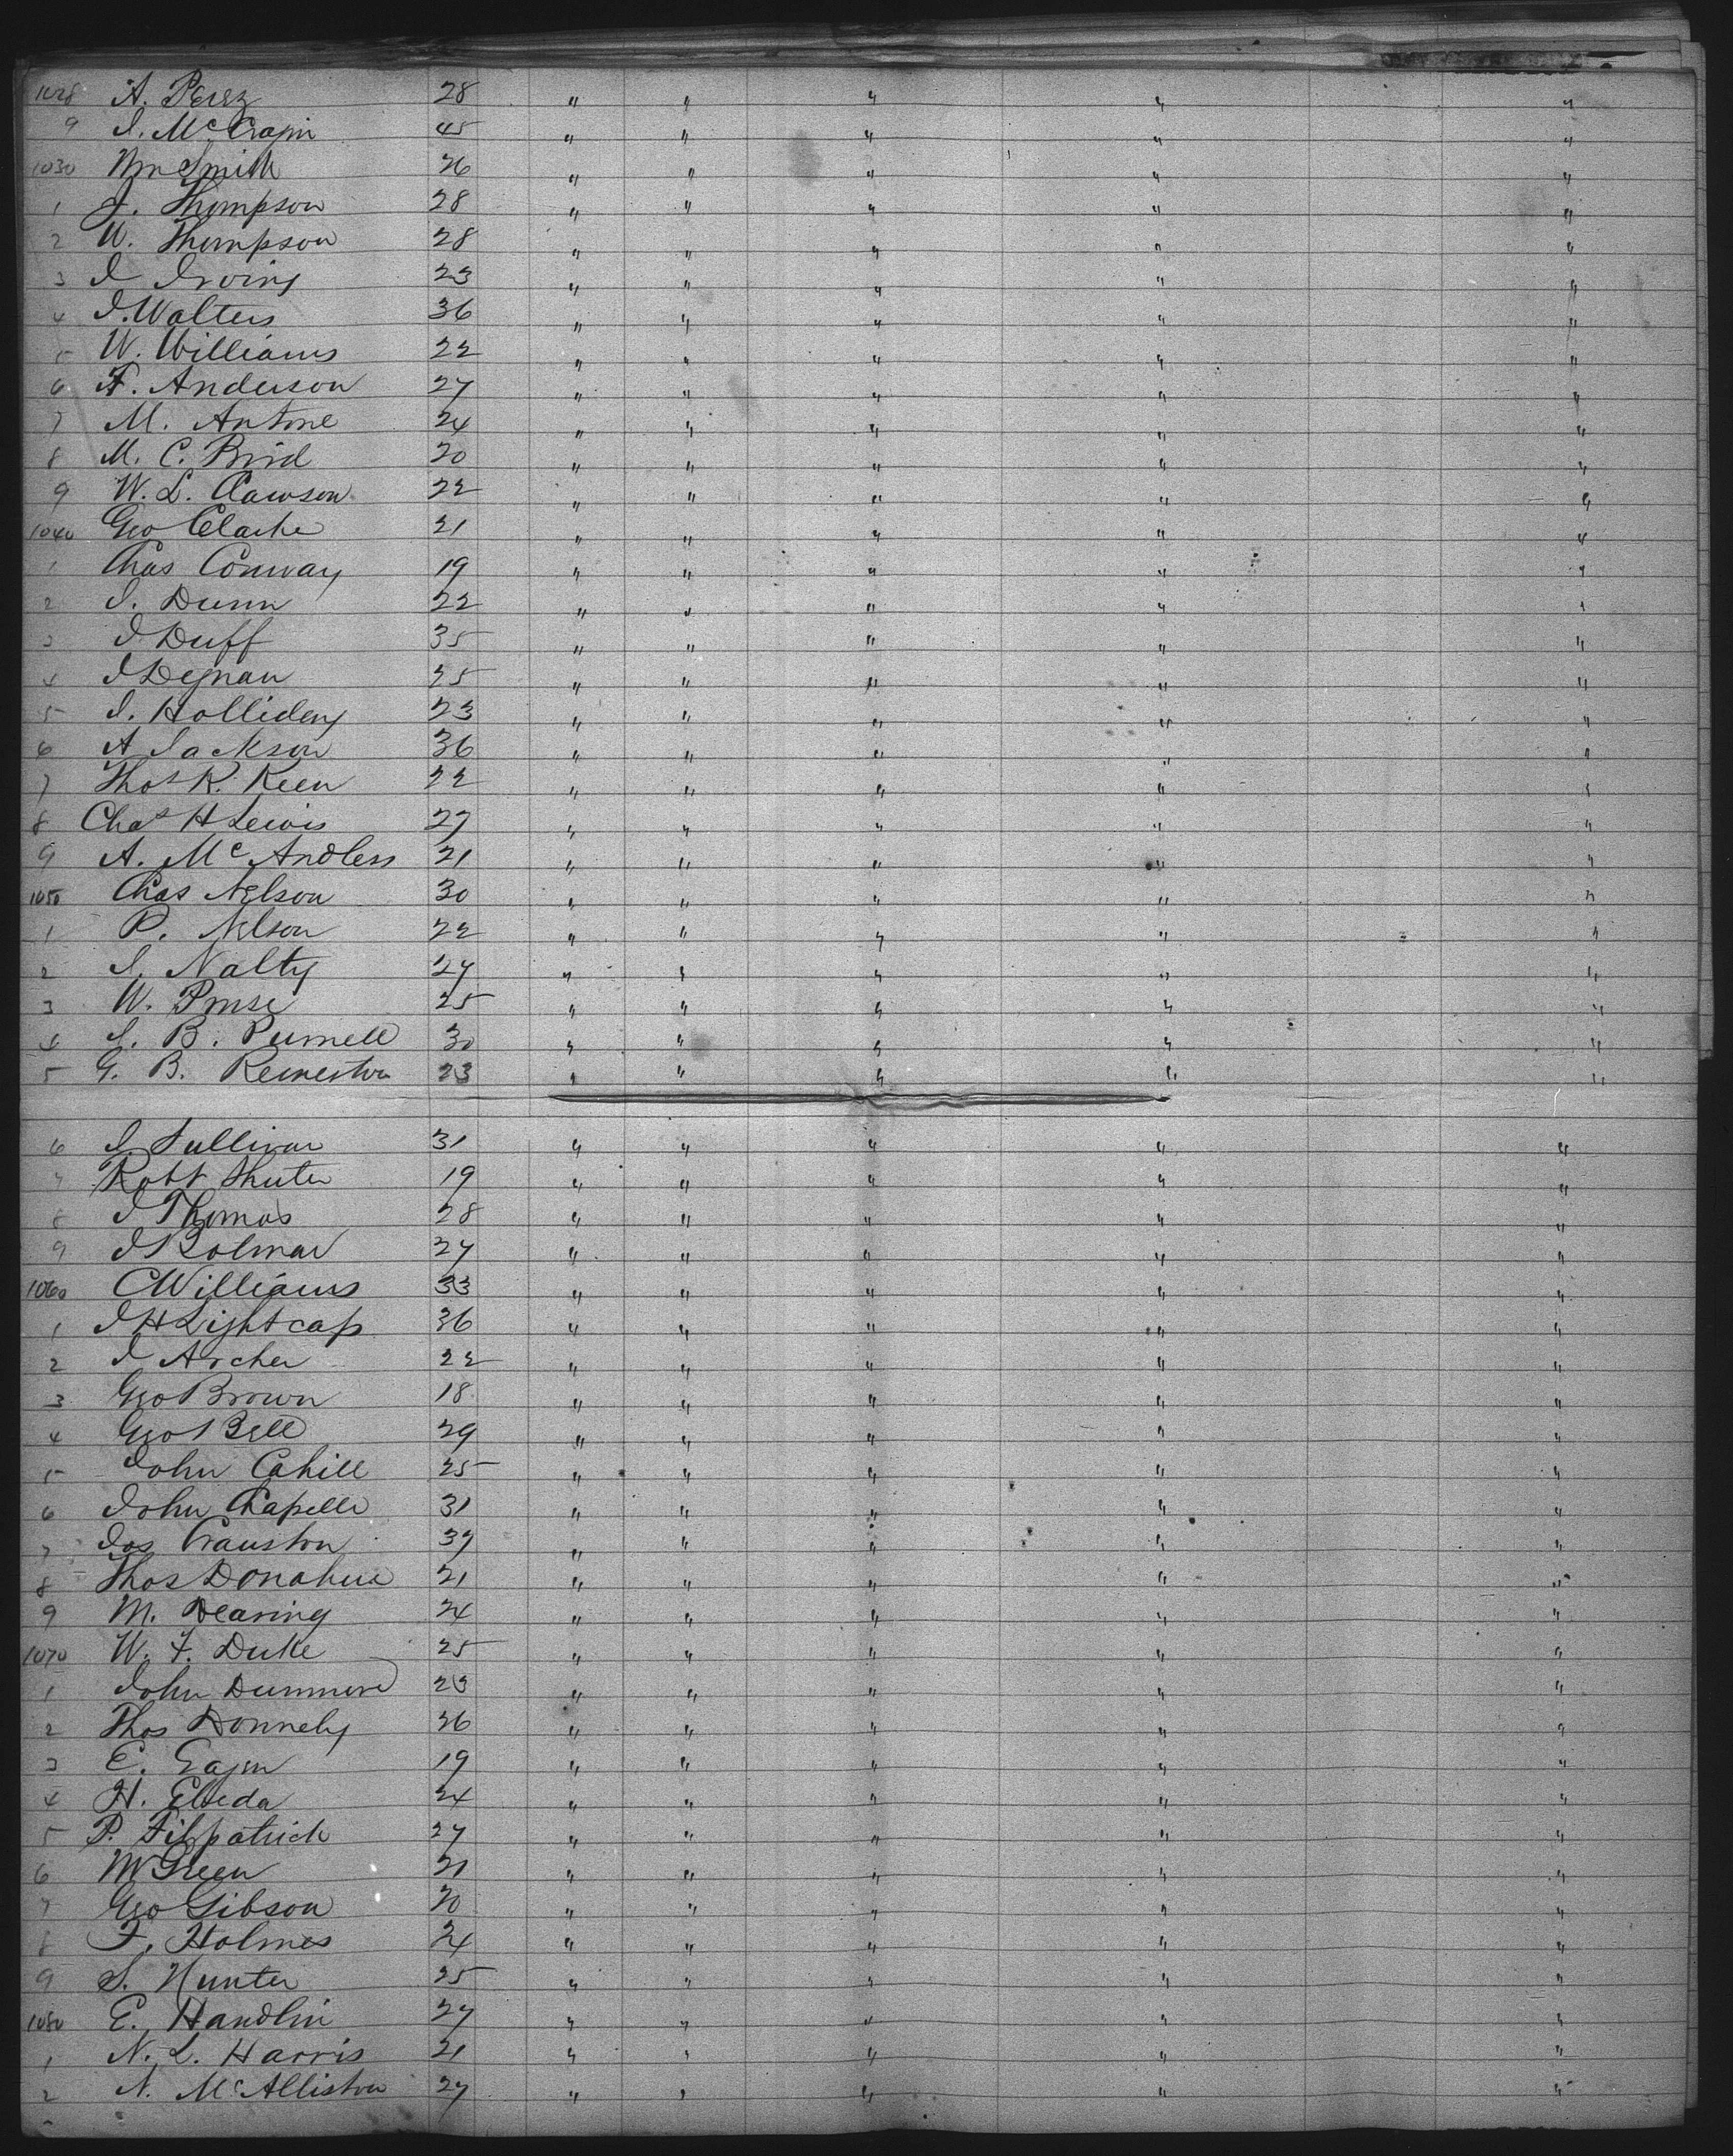 1028 A. Perez 28 " " " " "
9 J. McCragin 45 " " " " "
1030 Wm Smith 26 " " " " "
1 J. Thompson 28 " " " " "
2 W. Thompson 28 " " " " "
3 J Irving 23 " " " " "
4 J. Walters 36 " " " " "
5 W. Williams 22 " " " " "
6 F. Anderson 27 " " " " "
7 M. Antone 24 " " " " "
8 M. C. Bird 20 " " " " "
9 W. L. Clawson 22 " " " " "
1040 Geo Clarke 21 " " " " "
1 Chas Conway 19 " " " " "
2 J. Dunn 22 " " " " "
3 J Duff 35 " " " " "
4 J Degnan 25 " " " " "
5 J. Holliday 23 " " " " "
6 A Jackson 36 " " " " "
7 Thos R. Keen 22 " " " " "
8 Chas H Lewis 27 " " " " "
9 A. McAndless 21 " " " " "
1050 Chas Nelson 30 " " " " "
1 P. Nelson 22 " " " " "
2 J. Nalty 27 " " " " "
3 W. 25 " " " " "
4 J. B. Purnell 30 " " " " "
5 G. B. 23 " " " " "
6 J. Sullivan 31 " " " " "
7 Robt Shuter 19 " " " " "
8 J Thomas 28 " " " " "
9 J Bolmar 27 " " " " "
1060 C Williams 33 " " " " "
1 J H Lightcap 36 " " " " "
2 J Archer 22 " " " " "
3 Geo Brown 18 " " " " "
4 Geo Bell 29 " " " " "
5 John Cahill 25 " " " " "
6 John Chapelle 31 " " " " "
7 Jos Cranston 37 " " " " "
8 Thos Donahue 21 " " " " "
9 M. Dearing 24 " " " " "
1070 W. F. Duke 25 " " " " "
1 John Dunmore 23 " " " " "
2 Thos Donnely 26 " " " " "
3 E. Eagin 19 " " " " "
4 H. 24 " " " " "
5 P. Fitzpatrick 27 " " " " "
6 M Green 21 " " " " "
7 Geo Gibson 20 " " " " "
8 F. Holmes 24 " " " " "
9 S. Hunter 25 " " " " "
1080 E. Handlin 27 " " " " "
1 N. L. Harris 21 " " " " "
2 N. McAlliston 27 " " " " "